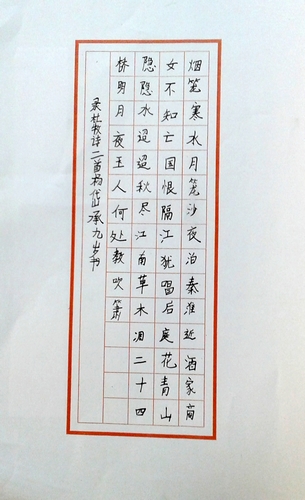 烟笼寒水月笼沙夜泊秦淮近酒家商
女不知亡国恨隔江犹唱后庭花青山
隐隐水迢迢秋尽江南草木凋二十四
桥明月夜玉人何处教吹箫
录杜牧诗二首杨岱承九岁书